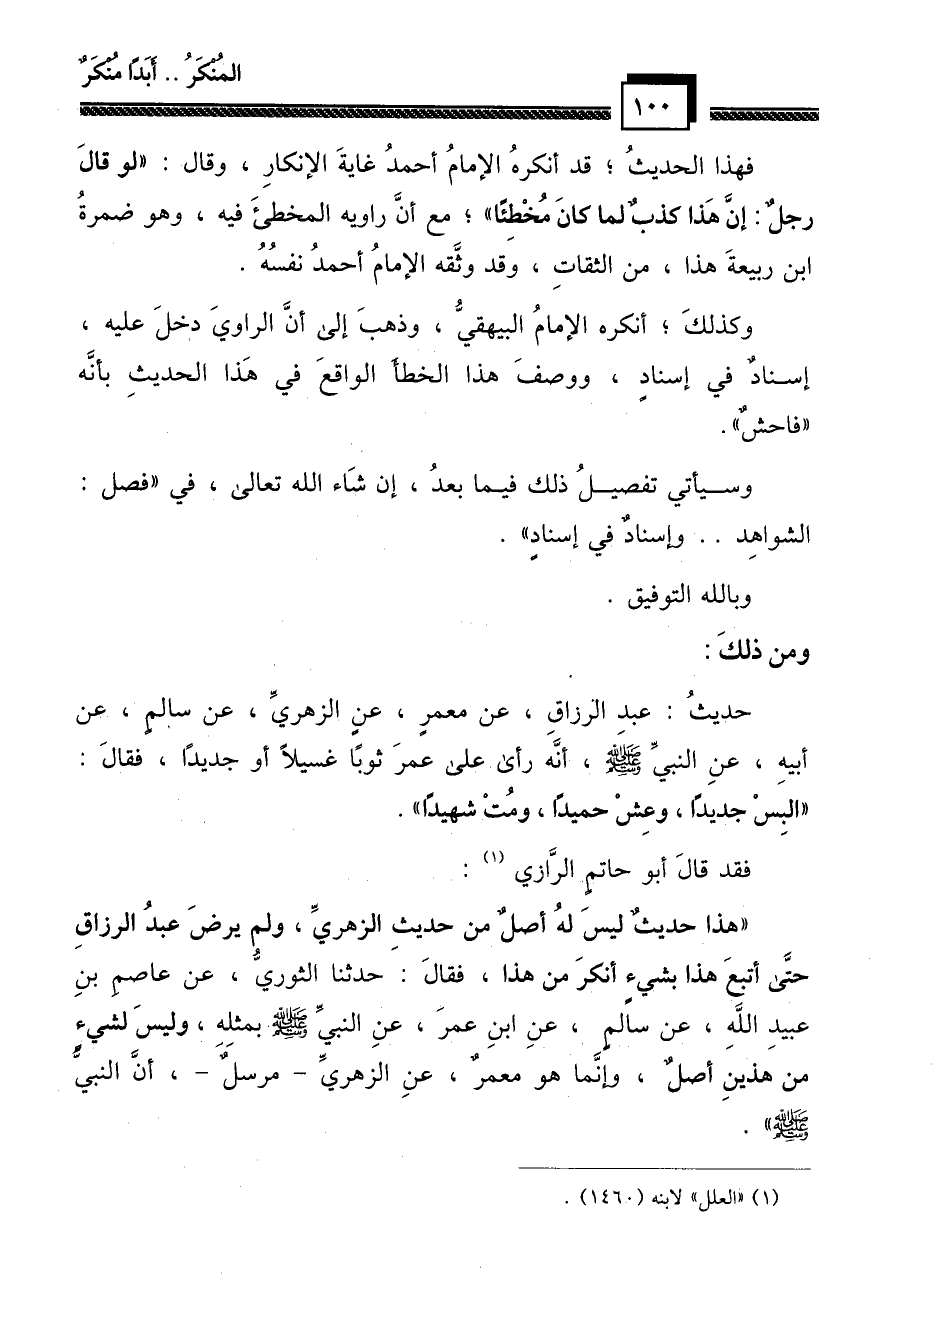 المُنْكَرُ .. أَبَدًا مُنْكَرٌ
١٠٠
فهذا الحديثُ ؛ قد أنكرهُ الإمامُ أحمدُ غايةَ الإنكارِ ، وقال : «لو قالَ
رجلٌ : إنَّ هَذا كذبٌ لما كانَ مُخْطِئًا» ؛ مع أنَّ راويه المخطئَ فيه ، وهو ضمرةُ
ابن ربيعةَ هذا ، من الثقاتِ ، وقد وثَّقه الإمامُ أحمدُ نفسُهُ .
وكذلكَ ؛ أنكره الإمامُ البيهقيُّ ، وذهبَ إلى أنَّ الراويَ دخلَ عليه ،
إسنادٌ في إسنادٍ ، ووصفَ هذا الخطأَ الواقعَ في هَذا الحديثِ بأنَّه
«فاحشٌ» .
وسيأتي تفصيلُ ذلك فيما بعدُ ، إن شَاء الله تعالى ، في «فصل :
الشواهِد .. وإسنادٌ في إسنادٍ» .
وبالله التوفيق .
ومن ذلكَ :
حديثُ : عبدِ الرزاقِ ، عن معمرٍ ، عنِ الزهريِّ ، عن سالمٍ ، عن
أبيهِ ، عنِ النبيِّ ﷺ ، أنَّه رأى على عمرَ ثوبًا غسيلاً أو جديدًا ، فقالَ :
«البِسْ جديدًا ، وعِشْ حميدًا ، ومُتْ شهيدًا» .
فقد قالَ أبو حاتمٍ الرَّازي (١) :
«هذا حديثٌ ليسَ لهُ أصلٌ من حديثِ الزهريِّ ، ولم يرضَ عبدُ الرزاقِ
حتَّى أتبعَ هذا بشيءٍ أنكرَ من هذا ، فقالَ : حدثنا الثوريُّ ، عن عاصمِ بنِ
عبيدِ اللَّهِ ، عن سالمٍ ، عنِ ابنِ عمرَ ، عنِ النبيِّ ﷺ بمثلِهِ ، وليسَ لشيءٍ
من هذينِ أصلٌ ، وإنَّما هو معمرٌ ، عنِ الزهريِّ - مرسلٌ - ، أنَّ النبيَّ
ﷺ» .
(١) «العلل» لابنه (١٤٦٠) .